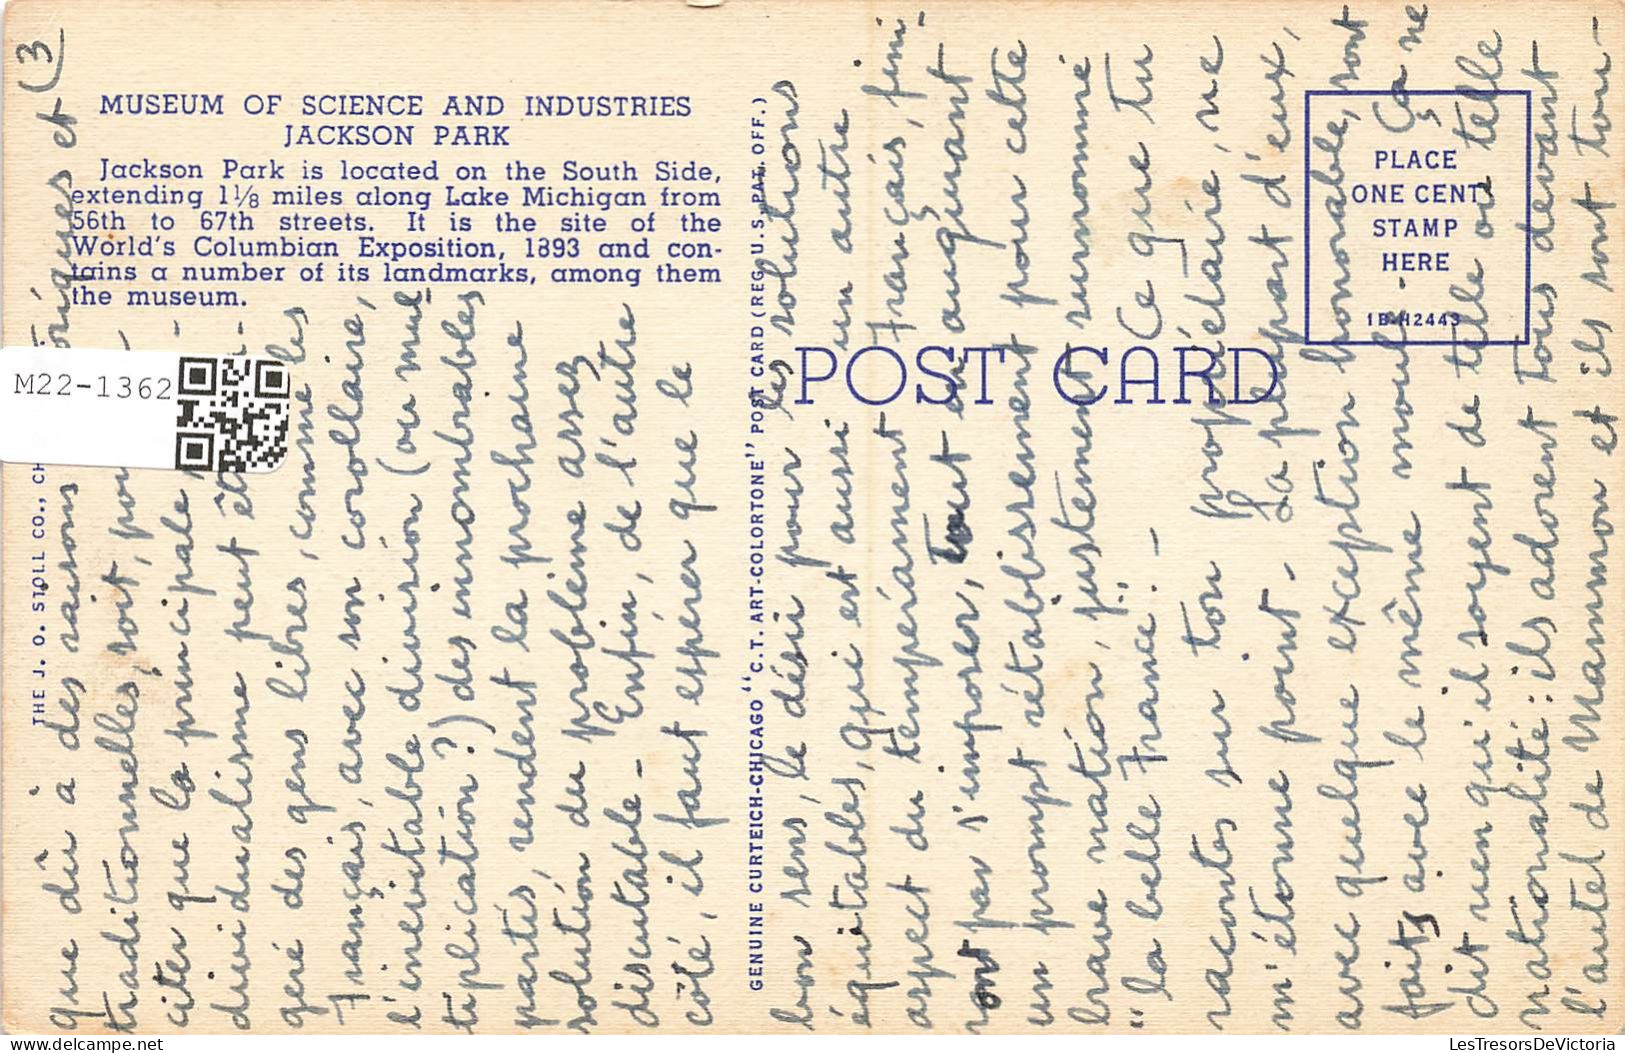 (3
MUSEUM OF SCIENCE AND INDUSTRIES
JACKSON PARK
Jackson Park is located on the South Side,
extending 1⅛ miles along Lake Michigan from
56th to 67th streets. It is the site of the
World's Columbian Exposition, 1893 and con-
tains a number of its landmarks, among them
the museum.
M22-1362
THE J. O. STOLL CO., CH
GENUINE CURTEICH-CHICAGO "C.T. ART-COLORTONE" POST CARD (REG. U.S. PAT. OFF.)
POST CARD
PLACE
ONE CENT
STAMP
HERE
1B-H2443
que dû à des raisons et
traditionnelles, soit, pour
citer que la principale
dividualisme peut
géré des gens libres, comme les
Français, avec son corollaire,
l'inévitable division (ou mul-
tiplication?) des innombrables
partis, rendent la prochaine
solution du problème assez
discutable - Enfin, de l'autre
côté, il faut espérer que le
bon sens, le désir pour les solutions
équitables, qui est aussi un autre
aspect du tempérament Français, fini-
ront par s'imposer, tout en augurant
un prompt rétablissement pour cette
brave nation, justement surnommé
"la belle France". - Ce que tu
racontes sur ton propriétaire, ne
m'étonne point - La plupart d'eux,
avec quelque exception honorable, sont
faits avec le même moule - Ça ne
dit rien qu'il soyent de telle ou telle
nationalité: ils adorent tous devant
l'autel de Mammon et ils sont tou-
LesTresorsDeVictoria